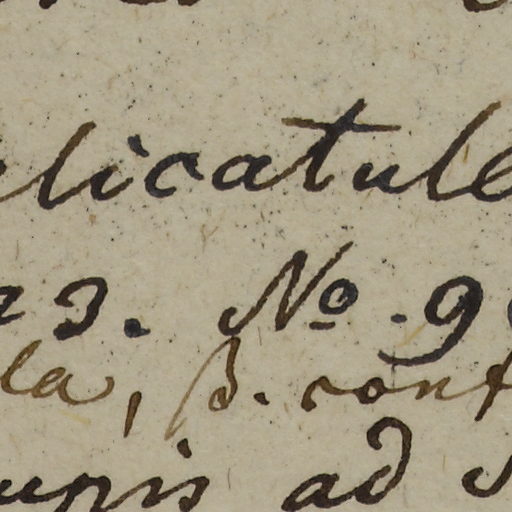 licatul
3. No. 9
la, β. conf
upis ad